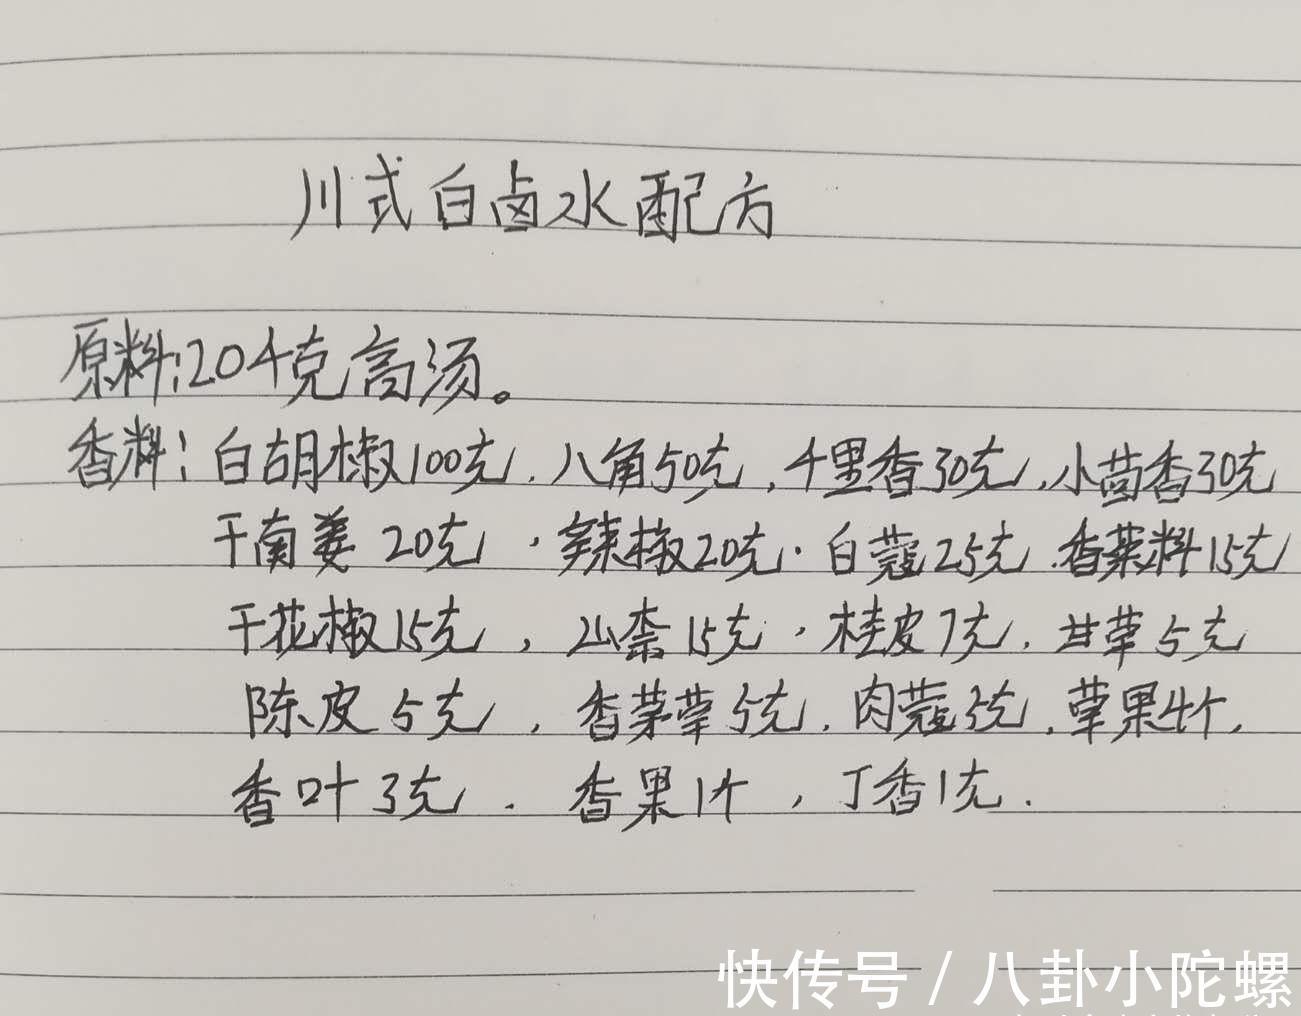 川式白卤水配方
原料:20千克高汤。
香料:白胡椒100克,八角50克,千里香30克,小茴香30克
干南姜20克,辣椒20克,白蔻25克,香菜料15克
干花椒15克,山柰15克,桂皮7克,甘草5克
陈皮5克,香茅草5克,肉蔻3克,草果4个,
香叶3克,香果1个,丁香1克.
快传号/八卦小陀螺